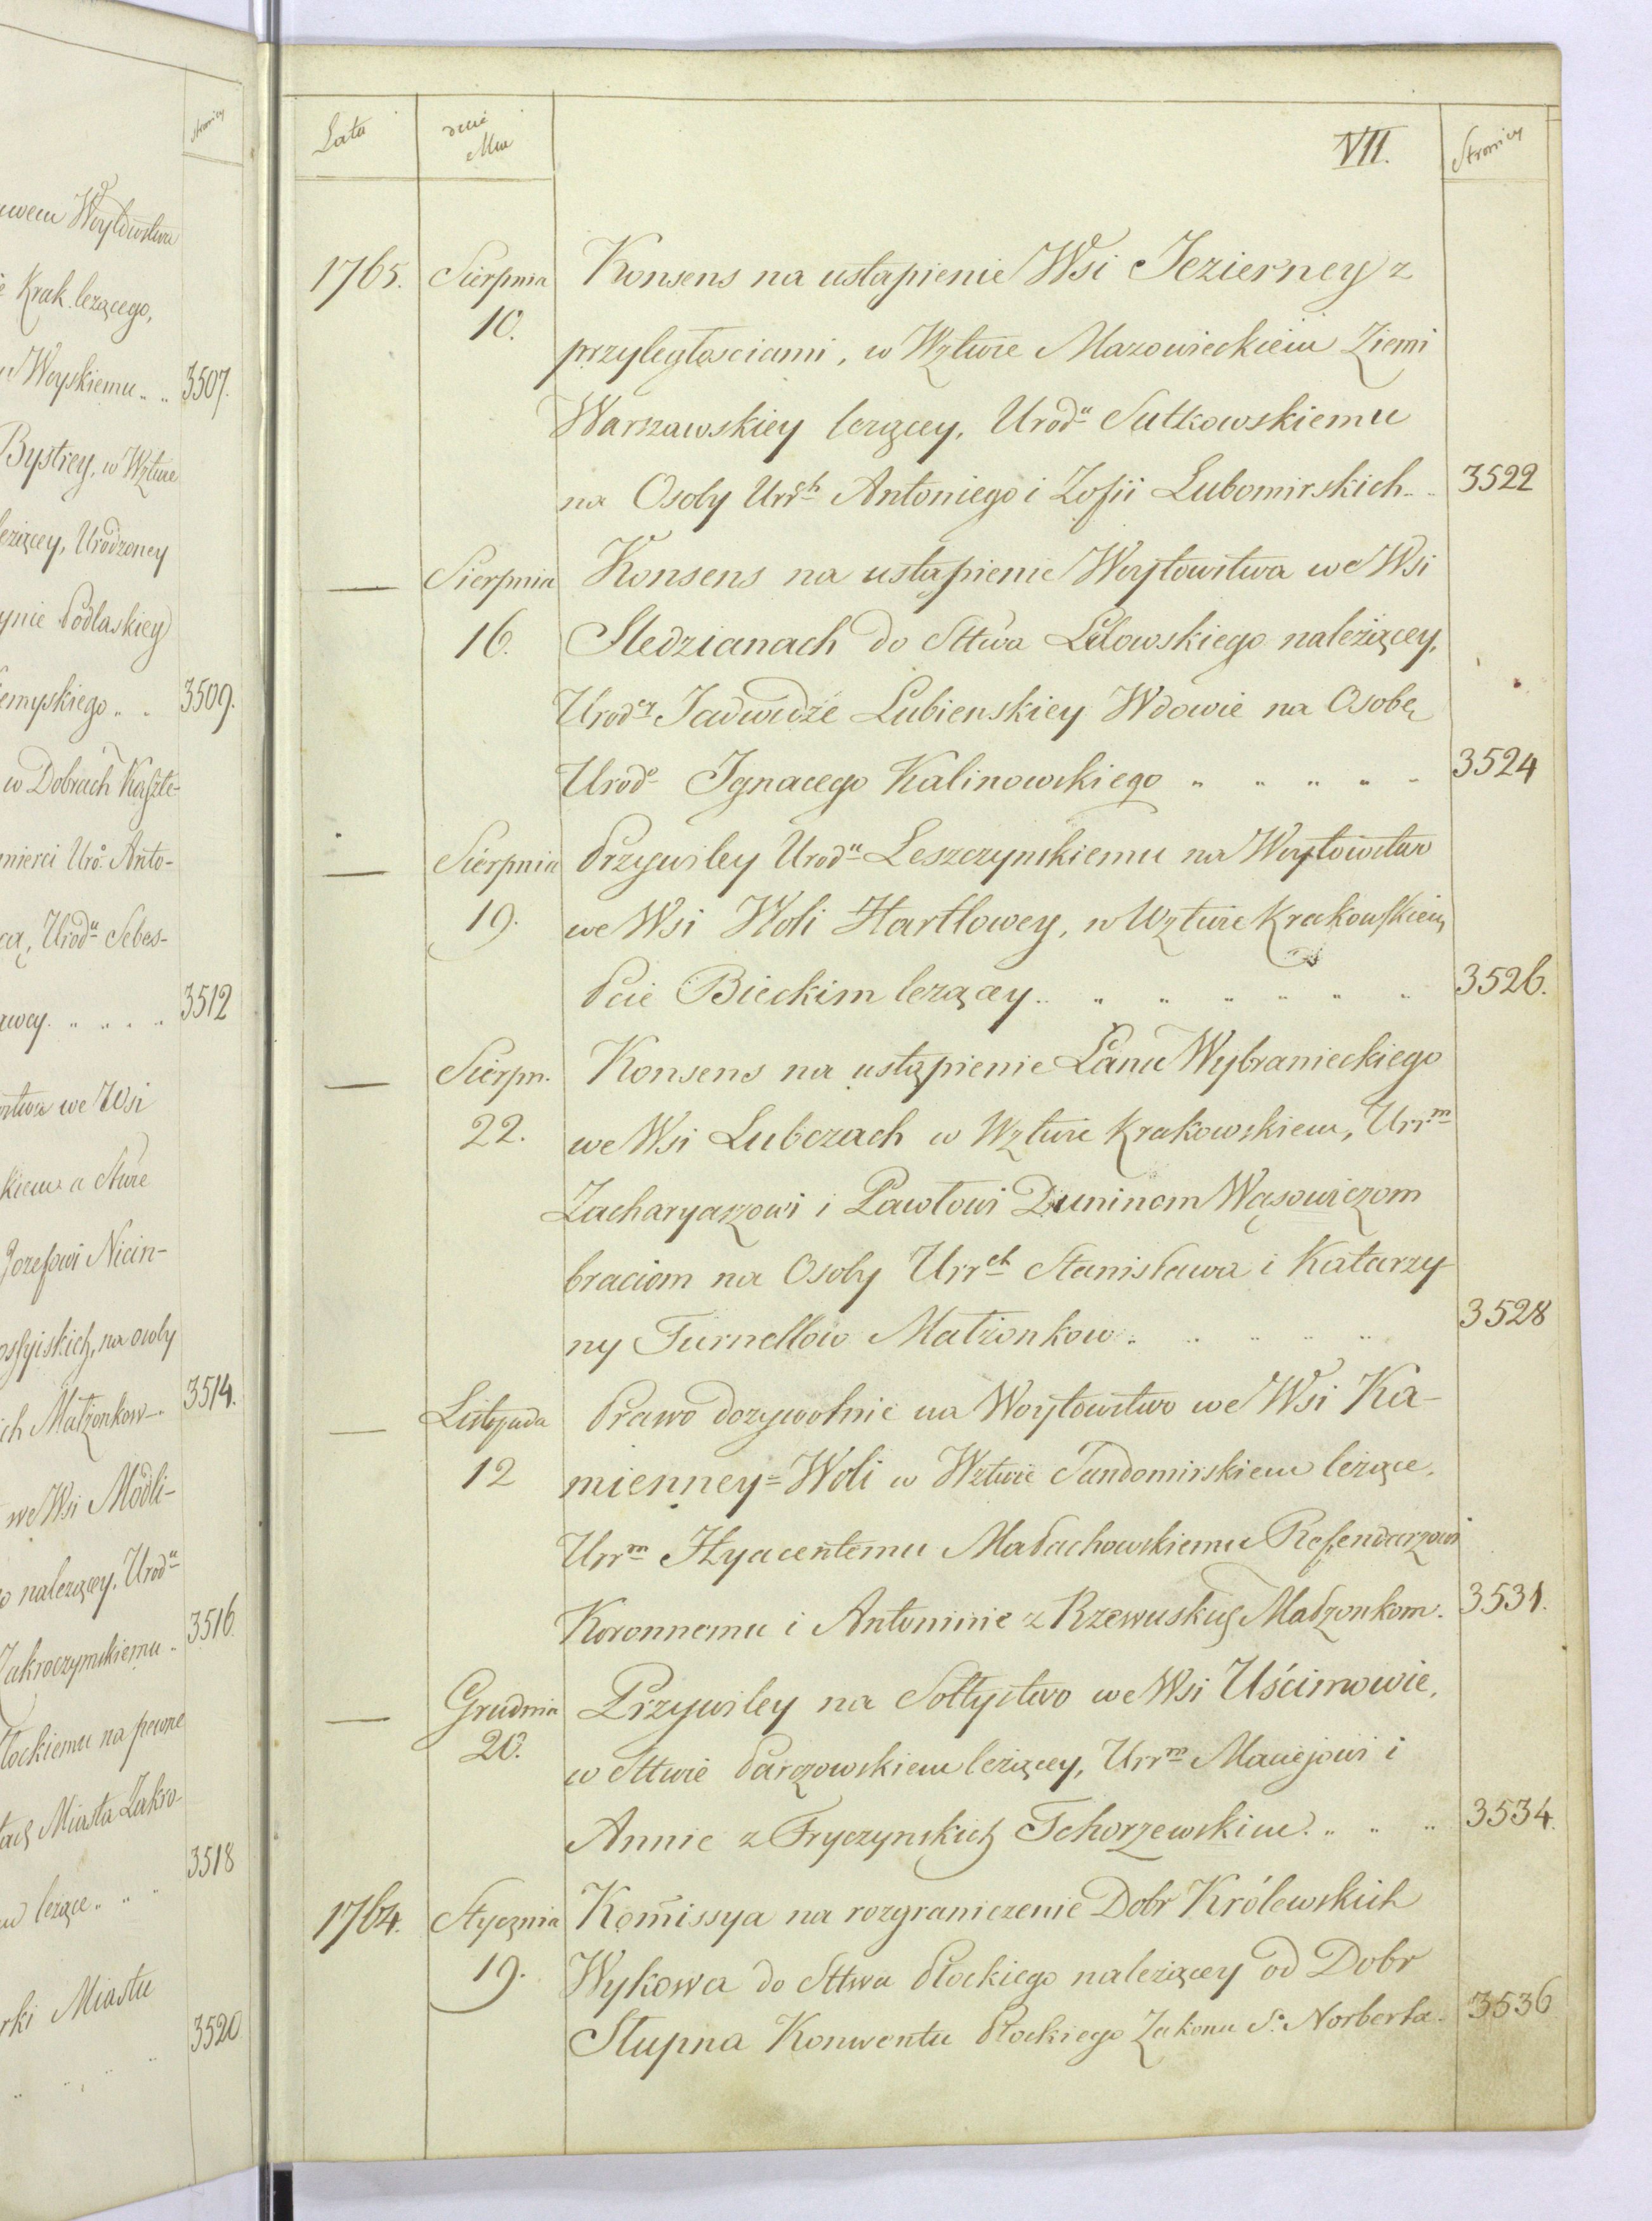 Stronicy
uwem Woytowstwa
Krak. lezącego,
Woyskiemu .. .. 3507.
Bystrey, w Wztwie
leżącey, Urodzoney
Podlaskiey
emyskiego .. .. 3509.
w Dobrach Kaszte-
mierci Uro. Anto-
Urodu Sebes-
.. .. .. .. 3512
we Wsi
Jozefowi Nicin-
na osoby
ch Małżonkow .. 3514.
we Wsi Modli-
nalezącey, Urodu
Zakroczymskiemu .. 3516
łockiemu na pewne
Miasta Zakro-
leżące .. .. .. 3518
rki Miastu
.. .. .. 3520
Lata
dnie Mca
VII.
Stronicy
1765. Sierpnia Konsens na ustąpienie Wsi Jezierney z
10. przyległosciami, w Wztwie Mazowieckiem Ziemi
Warszawskiey lezącey, Urodu Sułkowskiemu
na Osoby Urrch Antoniego i Zofii Lubomirskich .. .. 3522
— Sierpnia Konsens na ustąpienie Woytowstwa we Wsi
16. Sledzianach do Sttwa Lelowskiego należącey,
Urodz Jadwidze Lubienskiey Wdowie na Osobę
Urodo Ignacego Kalinowskiego .. .. .. .. .. 3524
— Sierpnia Przywiley Urodu Leszczynskiemu na Woytowstwo
19. we Wsi Woli Hartlowey, w Wztwie Krakowskiem
Pcie Bieckim lezącey .. .. .. .. .. .. .. 3526.
— Sierpn. Konsens na ustąpienie Łanu Wybranieckiego
22. we Wsi Lubczach w Wztwie Krakowskiem, Urrm
Zacharyaszowi i Pawłowi Duninom Wąsowiczom
braciom na Osoby Urrch Stanisława i Katarzy-
ny Turnellow Małżonkow .. .. .. .. .. 3528
— Listopada Prawo dozywotnie na Woytowstwo we Wsi Ka-
12 mienney=Woli w Wztwie Sandomirskiem leżące,
Urrm Hyacentemu Małachowskiemu Referendarzowi
Koronnemu i Antoninie z Rzewuskich Małzonkom. 3531.
— Grudnia Przywiley na Sołtystwo we Wsi Uścimowie,
20. w Sttwie Parczowskiem leżącey, Urrm Maciejowi i
Annie z Fryczynskich Tchorzewskim. .. .. .. 3534.
1764. Stycznia Kom̃issya na rozgraniczenie Dobr Królewskich
19. Wykowa do Sttwa Płockiego należącey od Dobr
Słupna Konwentu Płockiego Zakonu S. Norberta. 3536